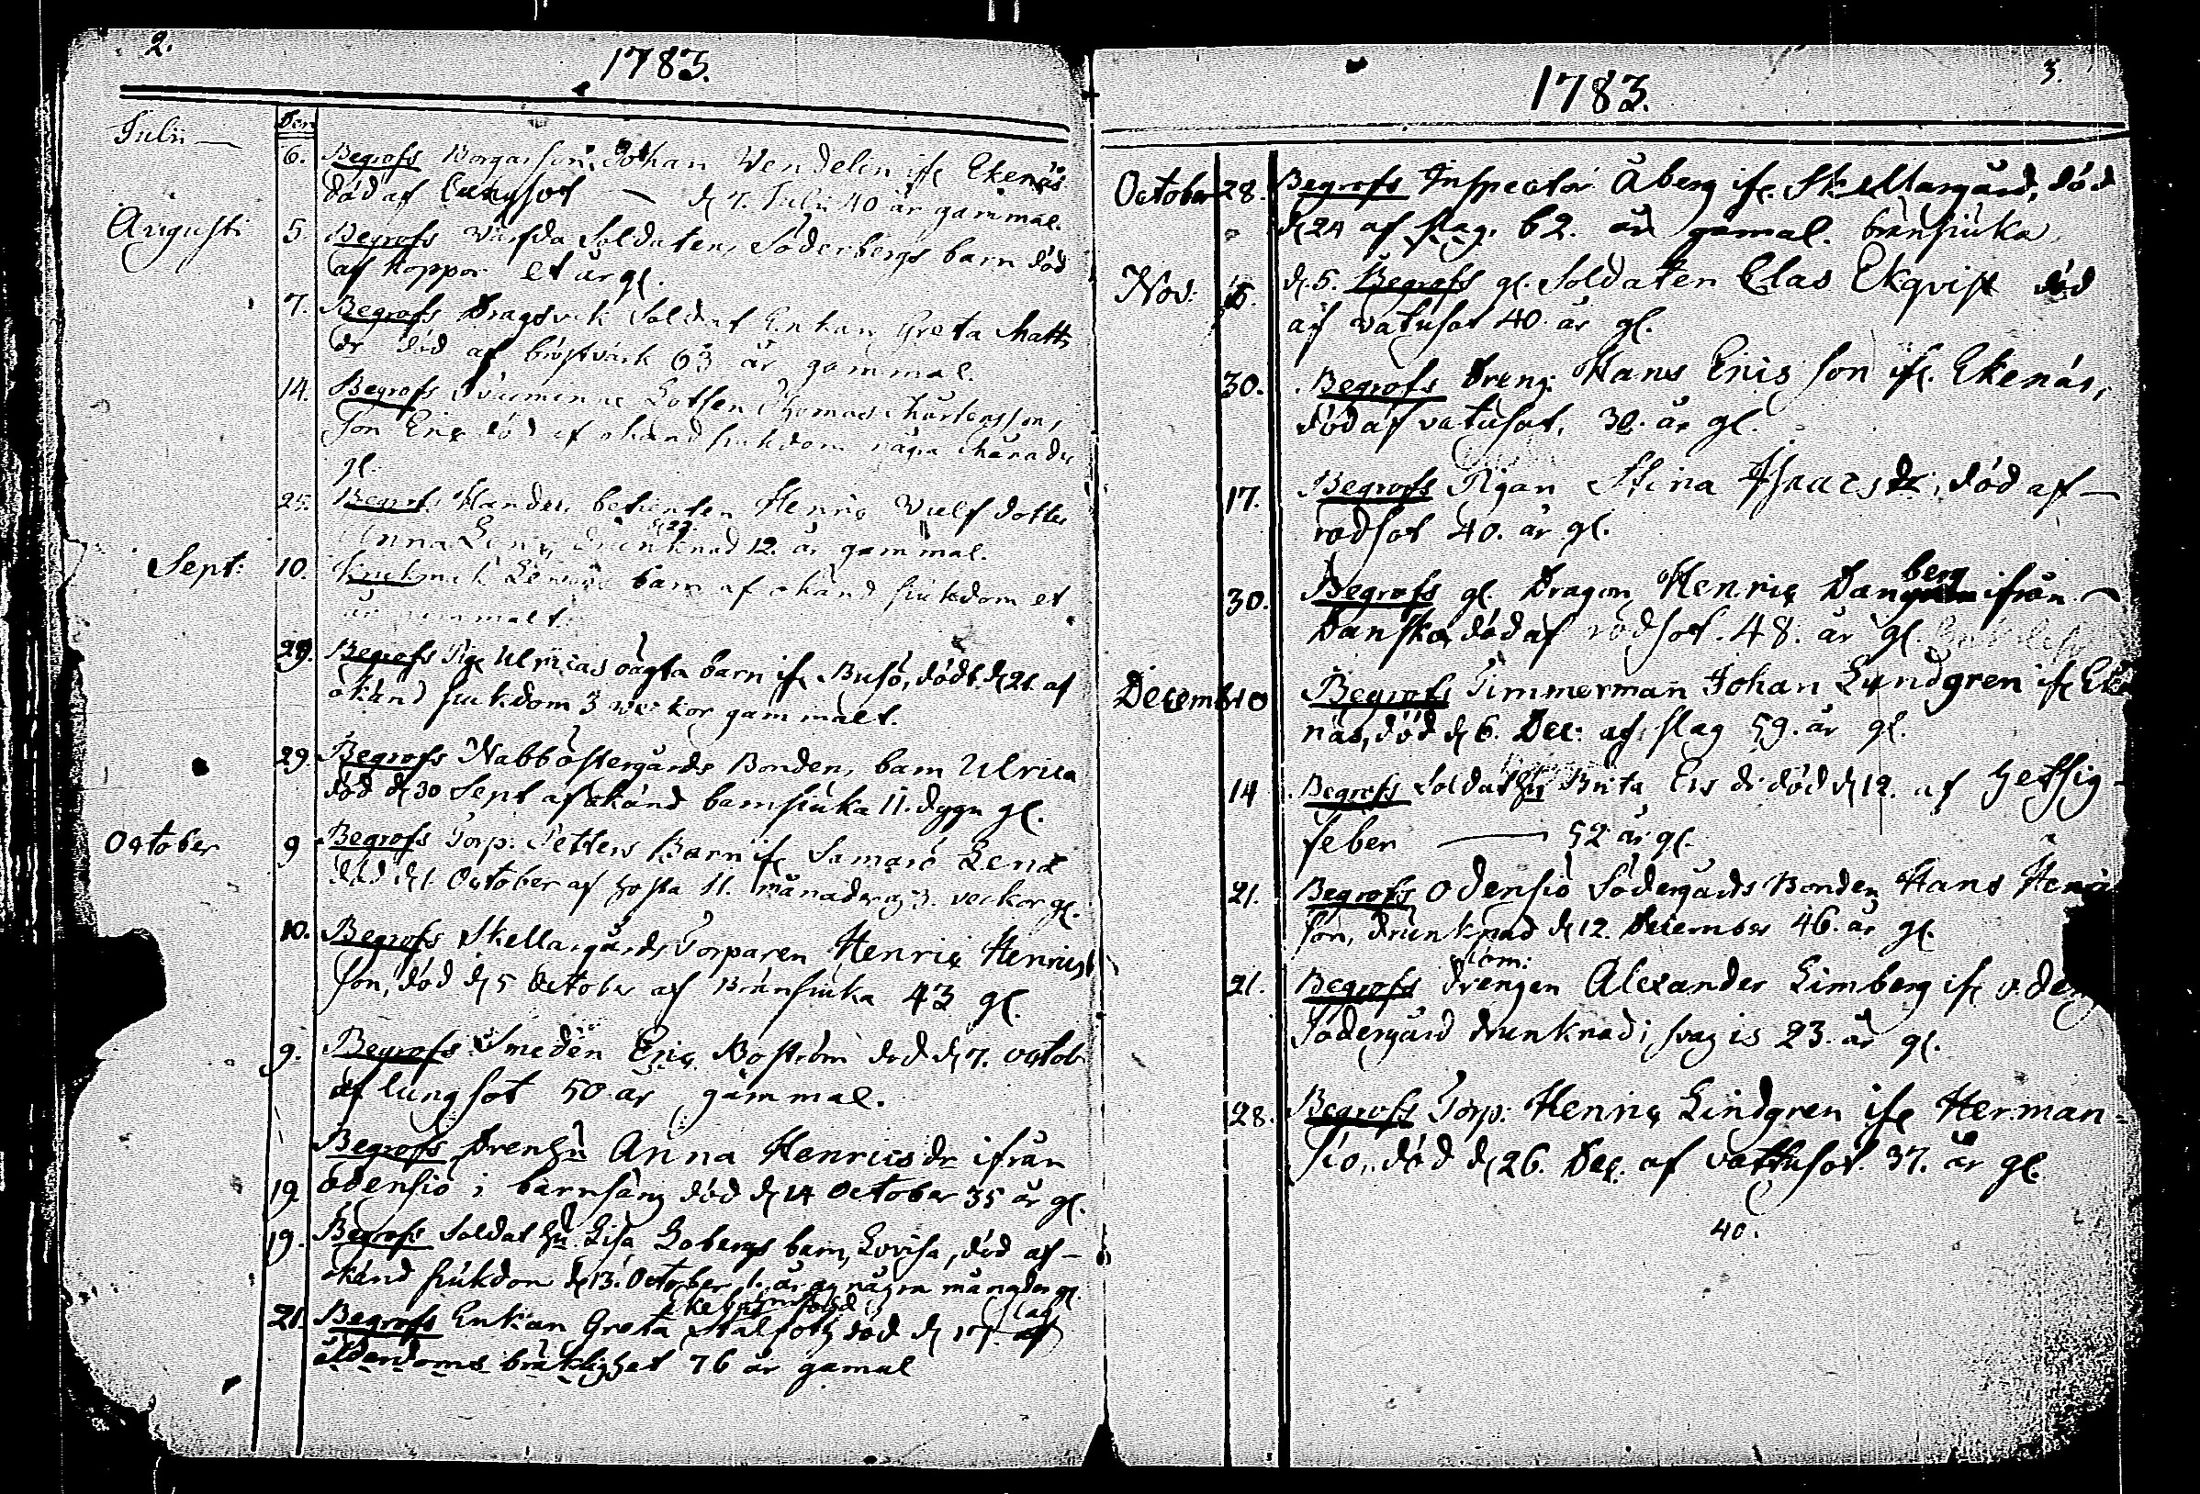 2.
1783.
Julii —
Den
6. Begrofs Borgaren Johan Wendelin ifr Ekenäs
död af lungsot — d 7. Julii 40 år gammal.
Augusti 5. Begrofs Värfda Soldaten, Söderbergs barn död
af koppor et år gl.
7. Begrofs Dragsvik Soldat Enkan Greta Matts
dr död af bröstvärk 63 år gammal.
14. Begrofs Lotsen Thomas Mårtensson,
Son Eric död af okänd siukdom några månader
gl.
25. Begrofs Handels betienten Henric Wulf dotter
Anna drunknad 12. år gammal.
d 22.
Sept: 10. barn af okänd siukdom et
år gammalt.
29. Begrofs Pig Ulricas oägta barn ifr Busö, dödt d 21. af
okänd siukdom 3 veckor gammalt.
29. Begrofs Nabbostergårds Bonden, barn Ulrica
död d 30 Sept af okänd barnsiuka 11. dygn gl.
October 9 Begrofs Torp: Petters Barn ifr Samsiö Lena
död d 1. October af hosta 11. månader o 3. veckor gl.
10. Begrofs Skellargårds Torparen Henric Henrics
son, död d 5 October af Bränsiuka 43 gl.
9. Begrofs Smeden Eric Boström död d 7. octob
af lungsot 50 år gammal.
Begrofs Drenghu Anna Henricsdr ifrån
19. odensiö i barnsäng död d 14 October 35 år gl.
19. Begrofs Soldat hu Lisa Lobergs barn, Lovisa, död af —
okänd siukdom d 13. October, 1. år och några månader gl.
21. Begrofs Enkan Greta Stålfoth död d 17. af
ag
ålderdoms bräklighet 76 år gamal
3.
1783.
October 28. Begrofs Inspector Åberg ifr. Skellargård, död
d 24 af slag. 62. år gamal. bränsiuka
Nov: 5. d. 5. Begrofs gl. Soldaten Clas Ekqvist död
af vatusot 40 år gl.
30. Begrofs Dreng: Hans Erics son ifr. Ekenäs,
död af vatusot, 30. år gl.
17. Begrofs Pigan Stina Isaacs dr, död af —
rodsot 40. år gl.
30. Begrofs gl. Dragon Henric Dan ifrån —
berg
Danskog död af rodsot. 48. år gl.
December 10 Begrofs Timmerman Johan Lundgren ifr Eke
näs, död d 6. Dec: af slag 59. år gl.
14 Begrofs Soldat hu Brita Ers dr död d 12. af hetsig
feber — 52 år gl.
21. Begrofs Odensiö Södergårds Bonden Hans Henric
son, drunknad d 12. December 46. år gl.
dom:
21. Begrofs drengen Alexander Limberg ifr oden
Södergård drunknad i svag is 23. år gl.
28. Begrofs Torp: Henric Lindgren ifr Herman-
siö, död d 26. Dec. af vattusot. 37. år gl.
40.